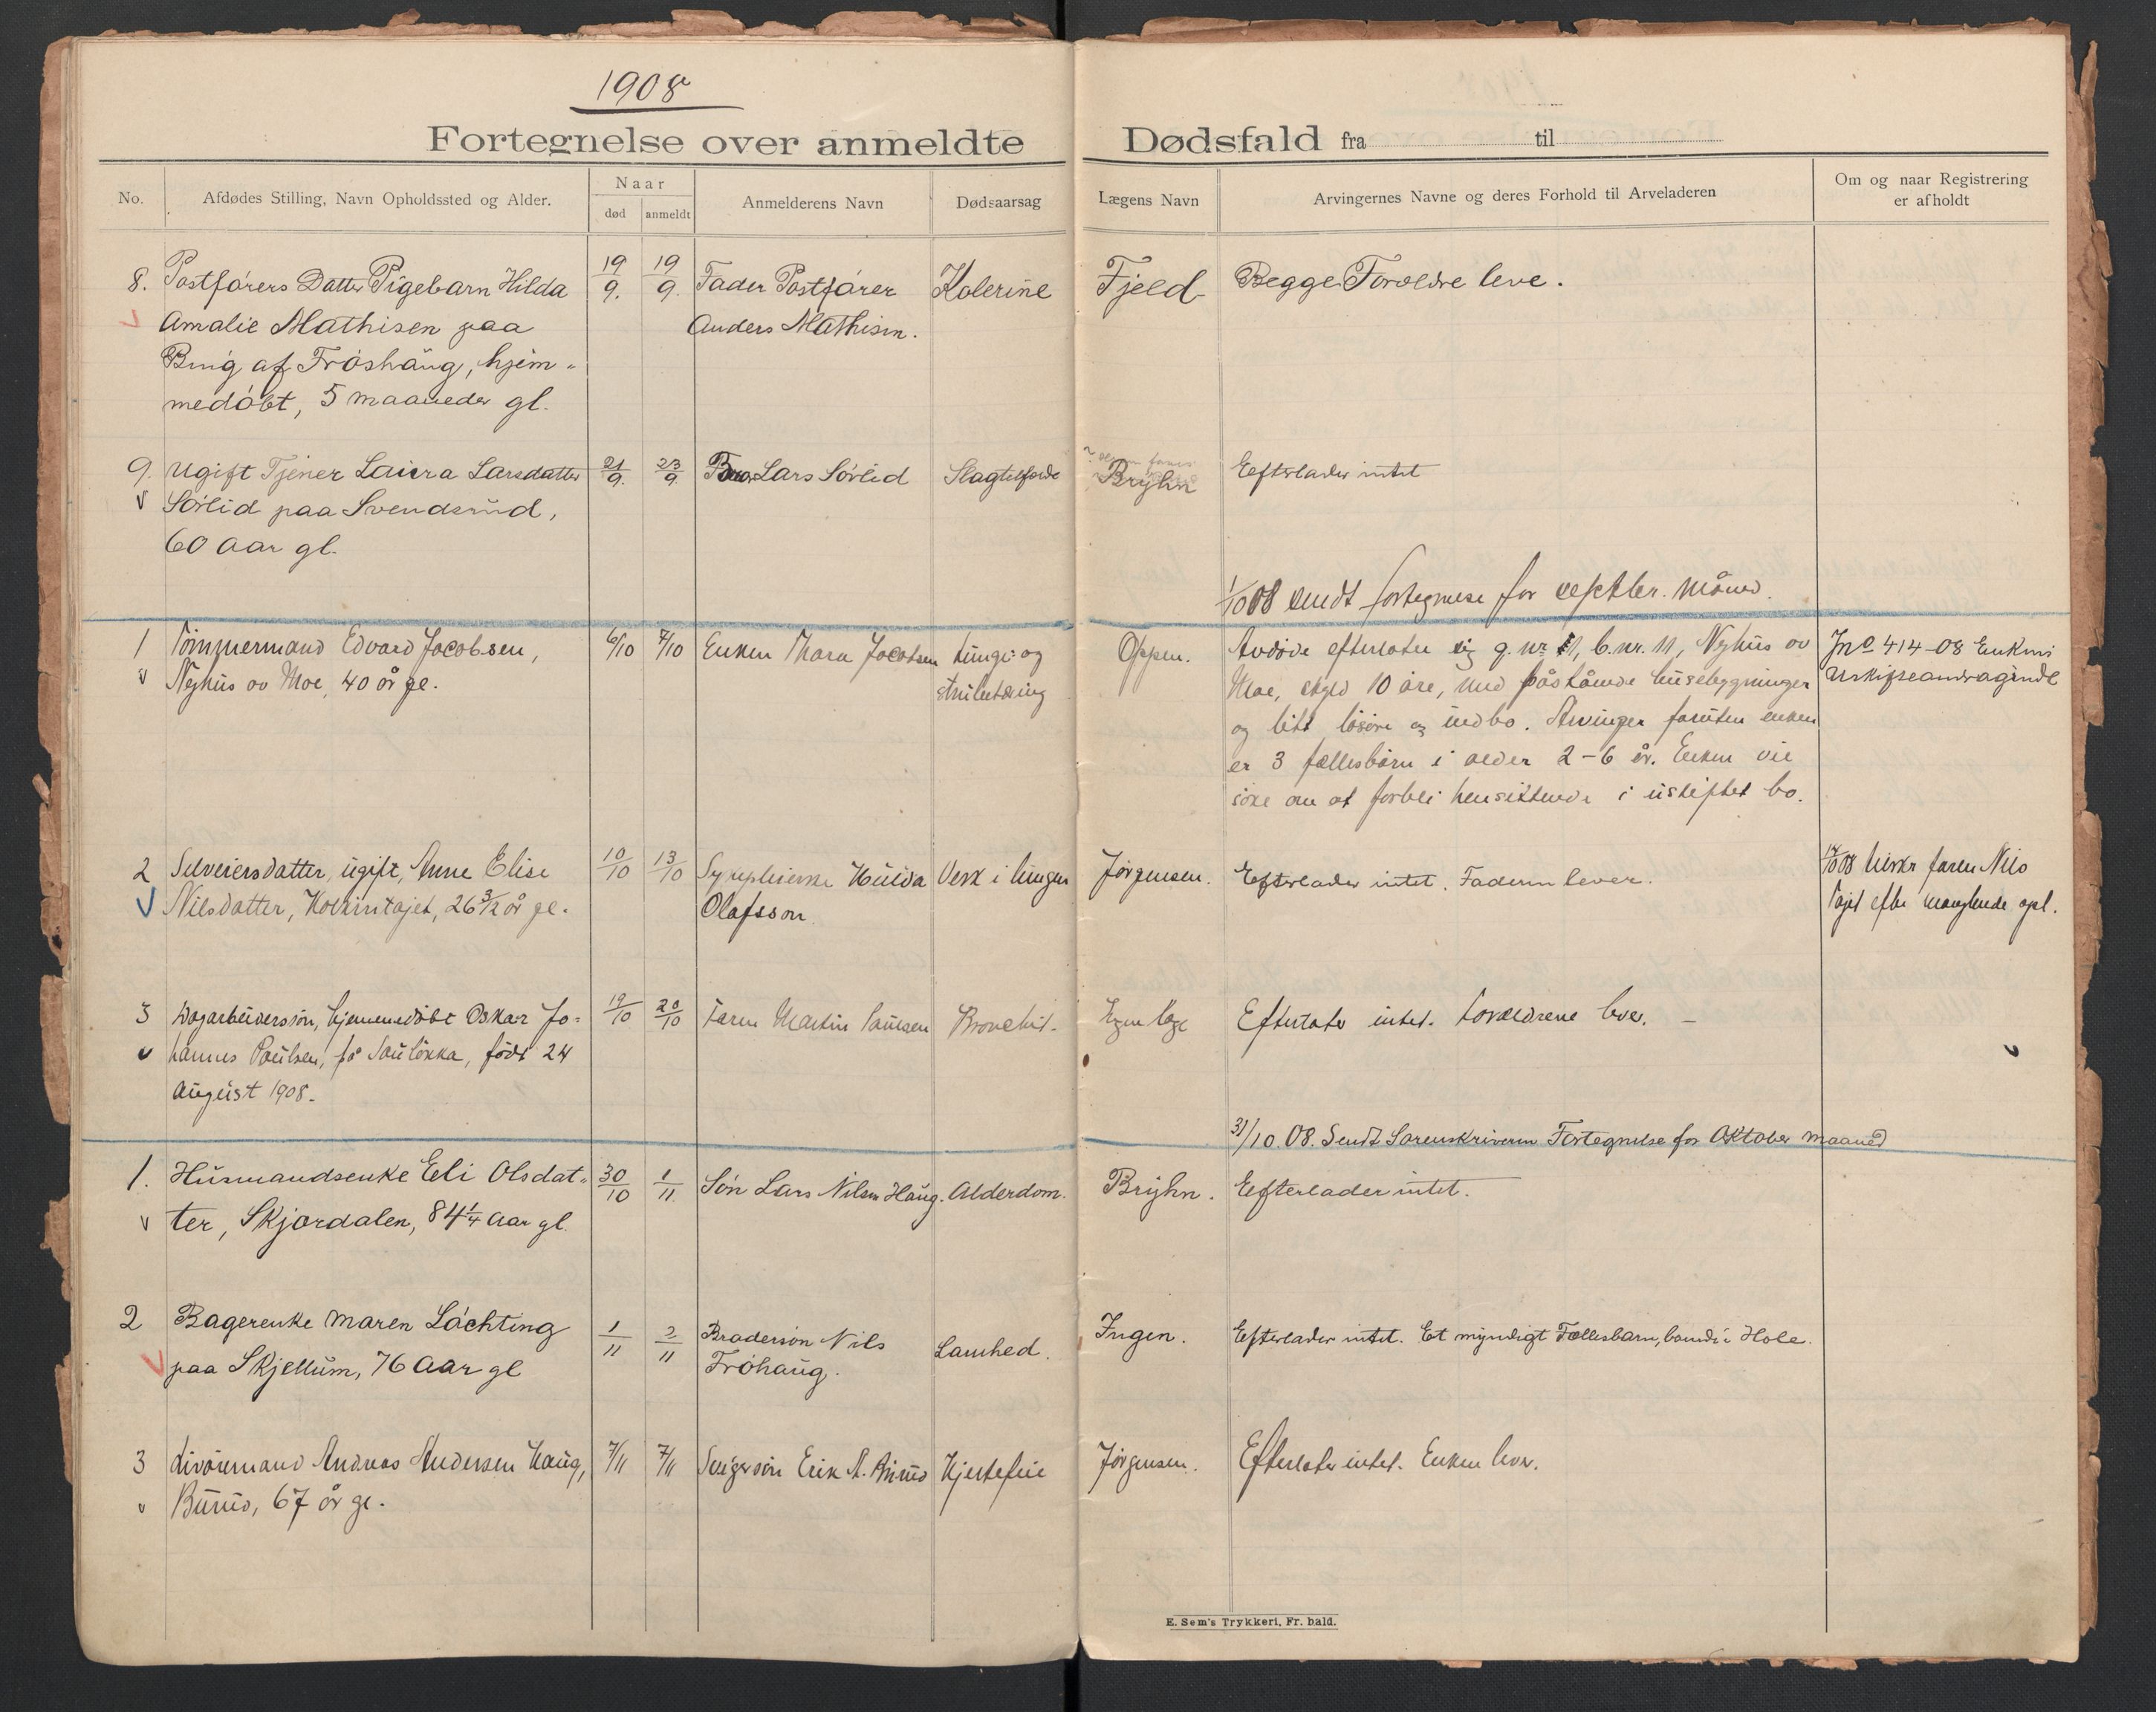 1908
Fortegnelse over anmeldte Dødsfald fra til
No.
Afdødes Stilling, Navn Opholdssted og Alder.
Naar
død
anmeldt
Anmelderens Navn
Dødsaarsag
Lægens Navn
Arvingernes Navne og deres Forhold til Arveladeren
Om og naar Registrering
er afholdt
8. Postførers Datter Pigebarn Hilda
Amalie Mathisen paa
af Frøshaug, hjem-
medøbt, 5 maaneder gl.
19/9. 19/9.
Fader Postfører
Anders Mathisen.
Kolerine
Fjeld
Begge Forældre leve.
9. Ugift Tjener Laura Larsdatter
Sørlid paa Svendsrud,
60 Aar gl.
21/9. 23/9.
Bror Lars Sørlid
Slagtilfælde
Bryhn
Efterlader intet
1/10 08 sendt fortegnelse for septbr. måned.
1 Tømmermand Edvard Jacobsen,
Nyhus av Moe, 40 år gl.
6/10 7/10
Enken Thora Jacobsen
Lunge- og
strubetæring
Oppen.
Avdøde efterlater sig g. nr. 11, b. nr. 11, Nyhus av
Moe, skyld 10 øre, med påstående husebygninger
og litt løsøre og indbo. Arvinger foruten enken
er 3 fællesbørn i alder 2-6 år. Enken vil
søke om at forbli hensittende i uskiftet bo.
Jno 414-08 Enkens
Uskifteandragende
2 Selveiersdatter, ugift, Anne Elise
Nilsdatter, 26 3/12 år gl.
10/10 13/10
Sykepleierske Hulda
Olafsson.
Verk i lungen
Jørgensen.
Efterlader intet. Faderen lever.
08 faren Nils
efter manglende opl.
3 Dagarbeidersøn, hjemmedøbt Oskar Jo-
hannes Paulsen, på Sauløkka, født 24
August 1908.
19/10 20/10
Faren Martin Paulsen
Bronchit.
Ingen læge
Efterlater intet. Forældrene lever. -
31/10.08. Sendt Sorenskriveren Fortegnelse for Oktober maaned
1. Husmandsenke Eli Olsdat-
ter, Skjordalen, 84 1/4 Aar gl.
30/10 1/11.
Søn Lars Nilsen Haug.
Alderdom.
Bryhn.
Efterlader intet.
2 Bagerenke Maren Løchting
paa Skjellum, 76 Aar gl
1/11 2/11
Brodersøn Nils
Frøhaug.
Lamhed.
Ingen.
Efterlader intet. Et myndigt Fællesbarn, boende i Hole.
3 Livøremand Andreas Andersen Haug,
Burud, 67 år gl.
7/11 7/11
Svigersøn Erik A. Burud
Hjertefeil
Jørgensen.
Efterlater intet. Enken lever.
E. Sem's Trykkeri, Fr. hald.